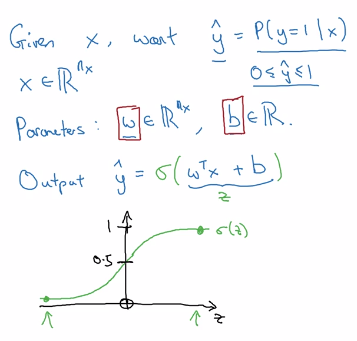 Given x, want ŷ = P(y=1|x)
x ∈ ℝⁿˣ 0 ≤ ŷ ≤ 1
Parameters: w ∈ ℝⁿˣ, b ∈ ℝ.
Output ŷ = σ(wᵀx + b)
z
1
σ(z)
0.5
0
z